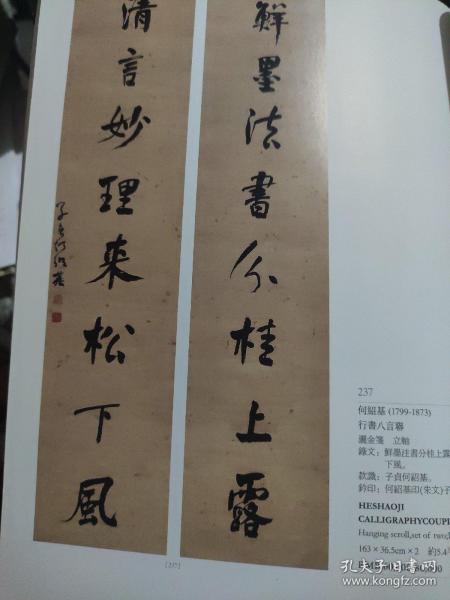 鮮墨法書分桂上露
清言妙理来松下風
子貞何紹基
[237]
237
何紹基 (1799-1873)
行書八言聯
灑金箋 立軸
錄文：鮮墨法書分桂上露
下風。
款識：子貞何紹基。
鈐印：何紹基印(朱文)子
HESHAOJI
CALLIGRAPHYCOUPL
Hanging scroll,set of two;
163 × 36.5cm × 2 約5.4
孔夫子旧书网